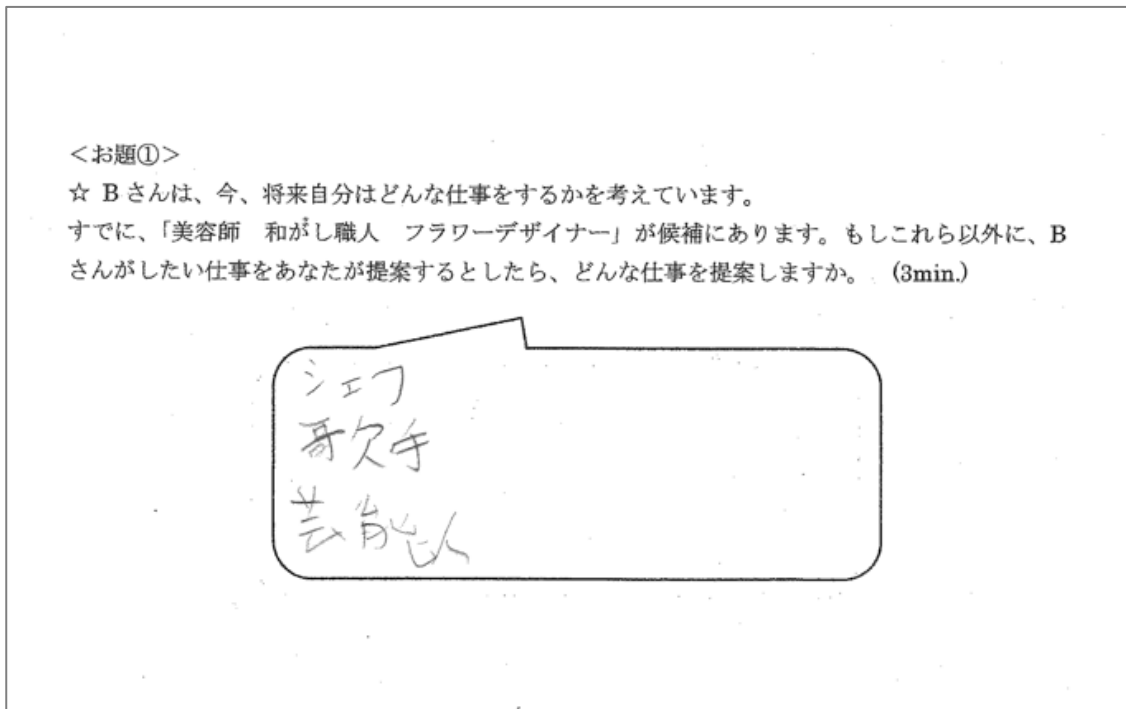 ＜お題①＞
☆ Bさんは、今、将来自分はどんな仕事をするかを考えています。
すでに、「美容師　和がし職人　フラワーデザイナー」が候補にあります。もしこれら以外に、B
さんがしたい仕事をあなたが提案するとしたら、どんな仕事を提案しますか。　(3min.)
シェフ
歌手
芸能人